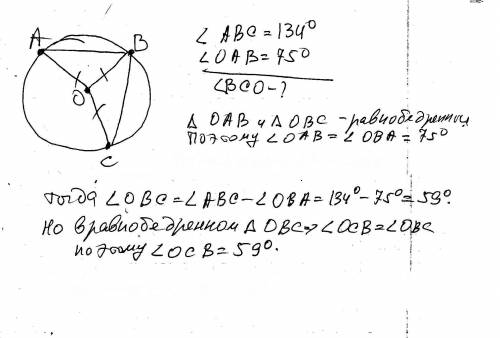 A B
O
C
∠ ABC = 134°
∠ OAB = 75°
∠BCO - ?
Δ OAB и Δ OBC - равнобедренн
поэтому ∠ OAB = ∠ OBA = 75°
тогда ∠ OBC = ∠ ABC - ∠ OBA = 134° - 75° = 59°.
Но в равнобедренном Δ OBC ∠OCB = ∠OBC
поэтому ∠ OCB = 59°.